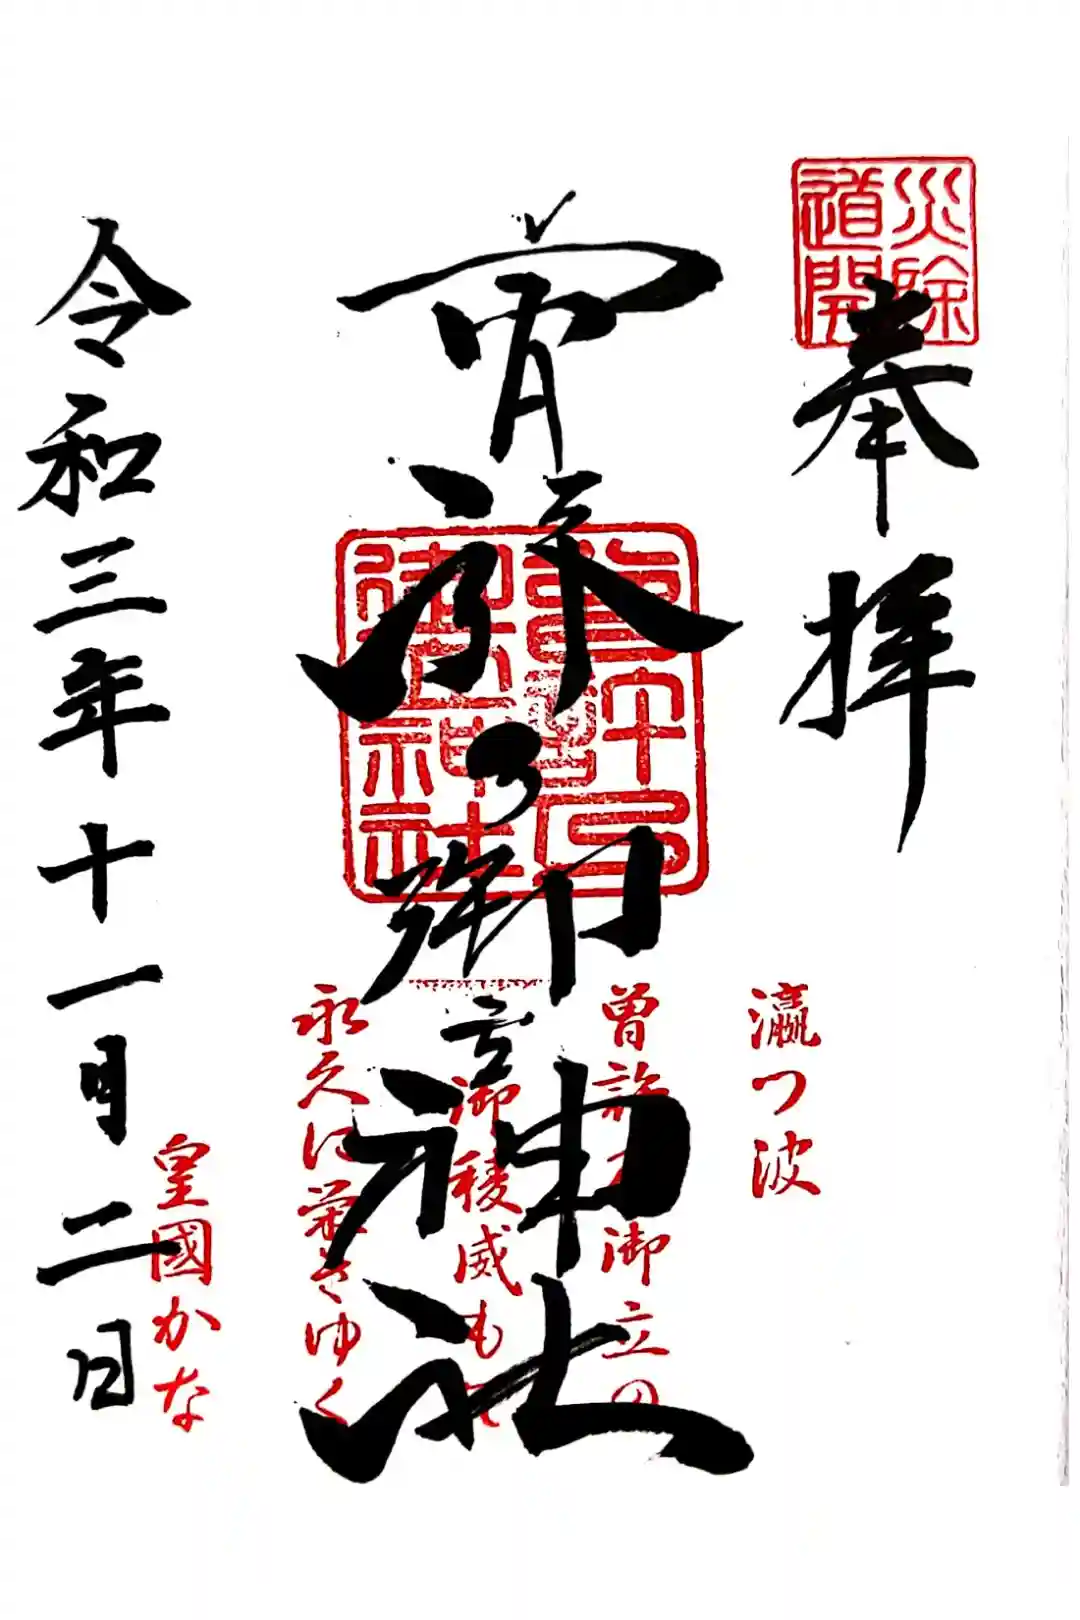 災除
道開
奉拝
曽許乃御立神社
瀛つ波
曽許乃御立の
御稜威もて
永久に栄さゆく
皇國かな
令和三年十一月二日